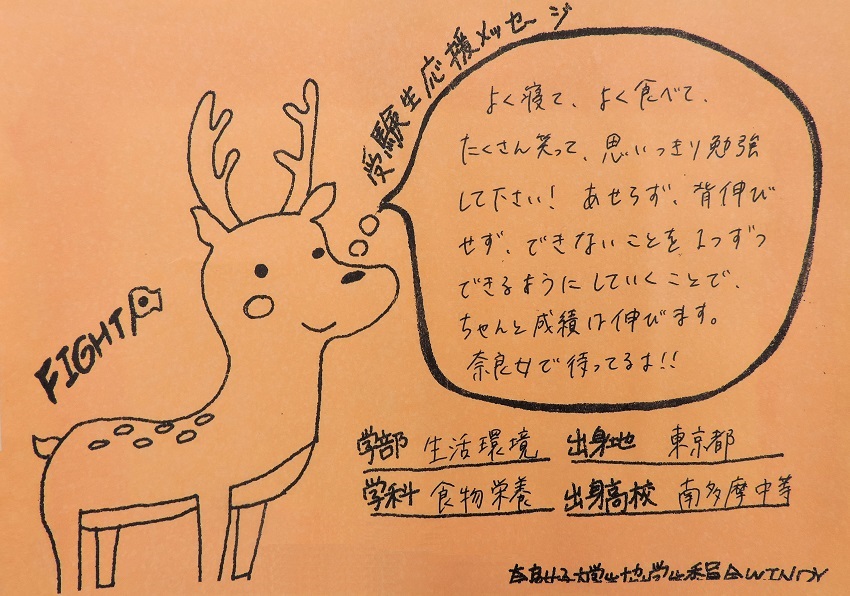 受験生応援メッセージ
よく寝て、よく食べて、
たくさん笑って、思いっきり勉強
して下さい！ あせらず、背伸び
せず、できないことを1つずつ
できるようにしていくことで、
ちゃんと成績は伸びます。
奈良女で待ってるよ!!
FIGHT
学部 生活環境 出身地 東京都
学科 食物栄養 出身高校 南多摩中等
奈良女子大学生協学生委員会WINDY